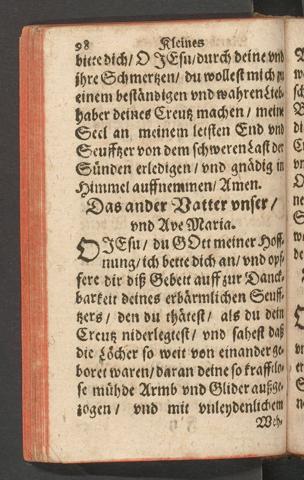 98 Kleines
bitte dich / O JEsu / durch deine vnd
jhre Schmertzen / du wollest mich zu
einem beständigen vnd wahren Lieb-
haber deines Creutz machen / meine
Seel an meinem letsten End vnd
Seufftzer von dem schweren Last der
Sünden erledigen / vnd gnädig in
Himmel auffnemmen / Amen.
Das ander Vatter vnser /
vnd Ave Maria.
O JEsu / du GOtt meiner Hoff-
nung / ich bette dich an / vnd opf-
fere dir diß Gebett auff zur Danck-
barkeit deines erbärmlichen Seuff-
tzers / den du thätest / als du dein
Creutz niderlegtest / vnd sahest daß
die Löcher so weit von einander ge-
boret waren / daran deine so krafftlo-
se mühde Armb vnd Glider außge-
zogen / vnd mit vnleydenlichem
Weh-